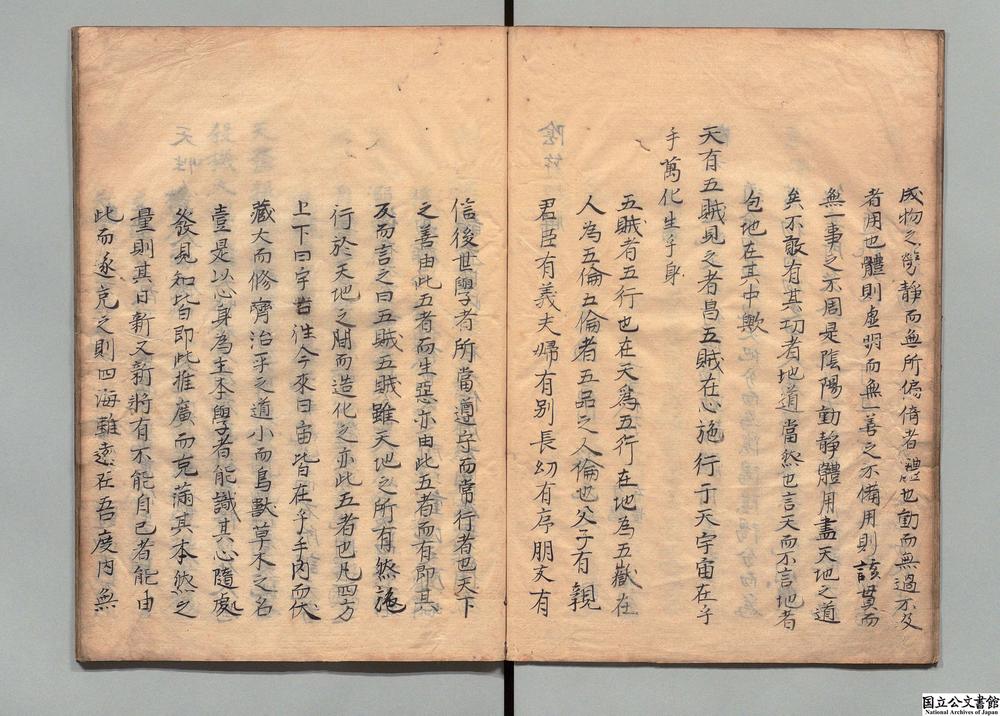 成物之際靜而無所偏倚者體也動而無過不及
者用也體則虛明而無一善之不備用則該貫而
無一事之不周是陰陽動靜體用盡天地之道
矣不敢有其功者地道當然也言天而不言地者
包地在其中歟
天有五賊見之者昌五賊在心施行于天宇宙在乎
手萬化生乎身
五賊者五行也在天為五行在地為五嶽在
人為五倫五倫者五品之人倫也父子有親
君臣有義夫婦有別長幼有序朋友有
信後世學者所當遵守而常行者也天下
之善由此五者而生惡亦由此五者而有即其
反而言之曰五賊五賊雖天地之所有然施
行於天地之間而造化之亦此五者也凡四方
上下曰宇古徃今來曰宙皆在乎手內而伏
藏大而修齊治平之道小而鳥獸草木之名
壹是以心身為主本學者能識其心隨處
發見知皆即此推廣而充滿其本然之
量則其日新又新將有不能自已者能由
此而遂充之則四海雖遠在吾度內無
国立公文書館
National Archives of Japan